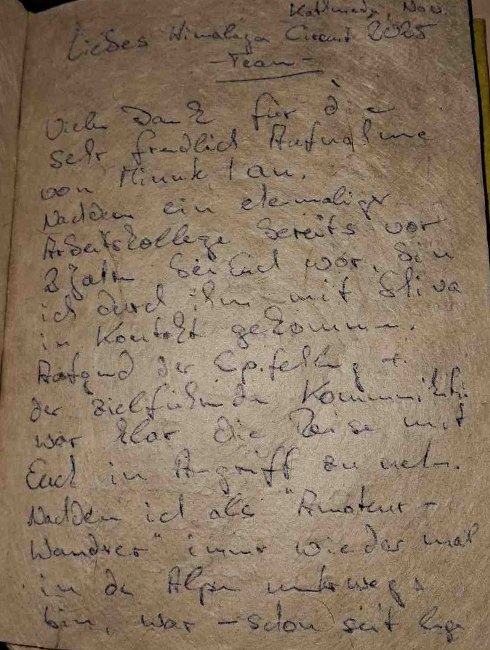 Kathmandu, Nov.
Liebes Himalaya Circuit 2025
- Team -
Vielen Dank für die
sehr freundlich Aufnahme
von Minute 1 an.
Nachdem ein ehemaliger
Arbeitskollege bereits vor
2 Jahren bei Euch war, bin
ich durch ihn mit Shiva
in Kontakt gekommen.
Aufgrund der Empfehlung +
der zielführenden Kommunikation
war klar die Reise mit
Euch in Angriff zu nehmen.
Nachdem ich als "Amateur-
Wanderer" immer wieder mal
in den Alpen unterwegs
bin, war - schon seit